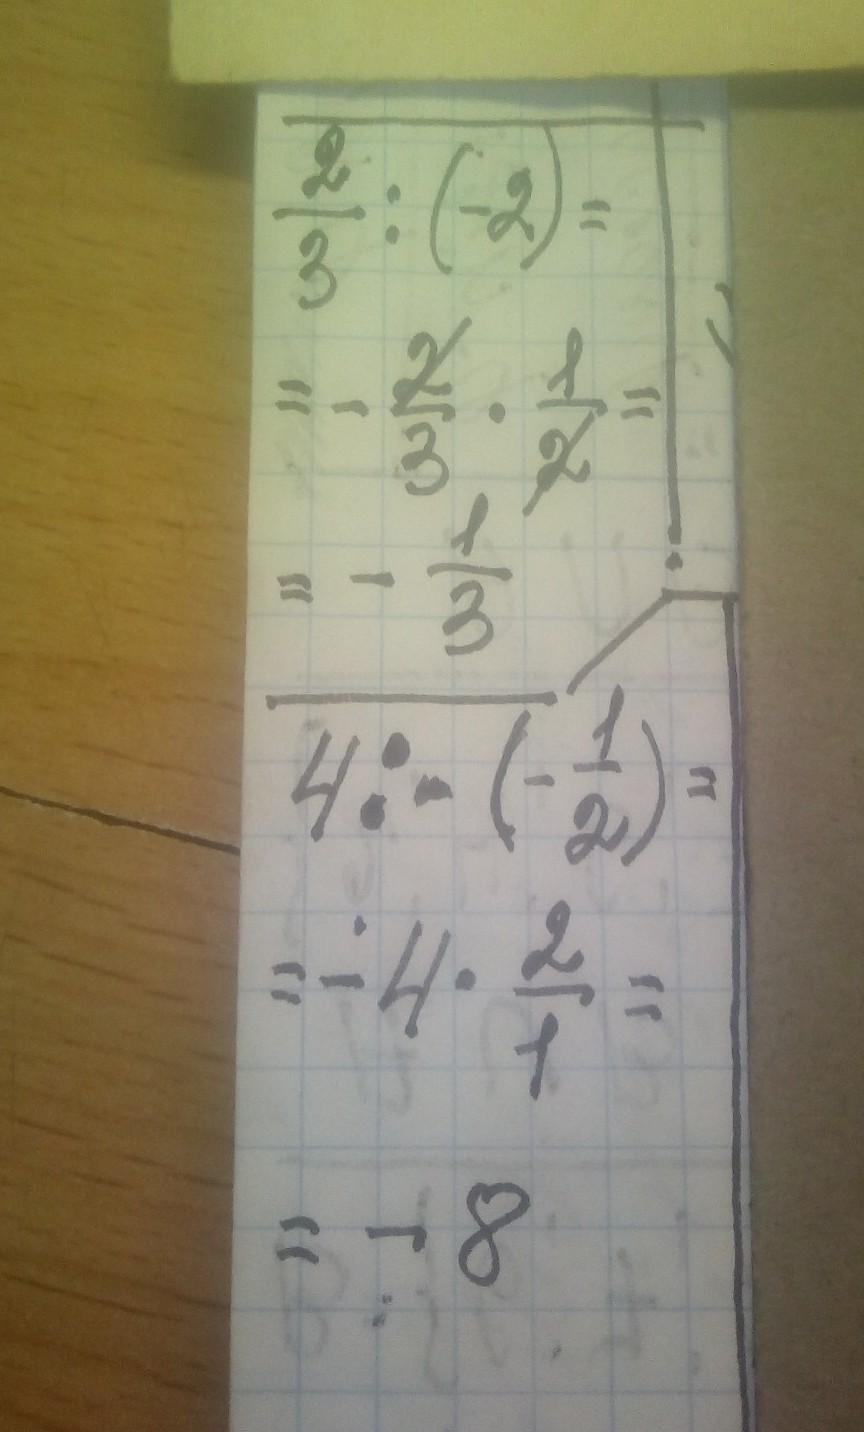 2/3 : (-2) =
= - 2/3 · 1/2 =
= - 1/3
4 : - (- 1/2) =
= - 4 · 2/1 =
= - 8